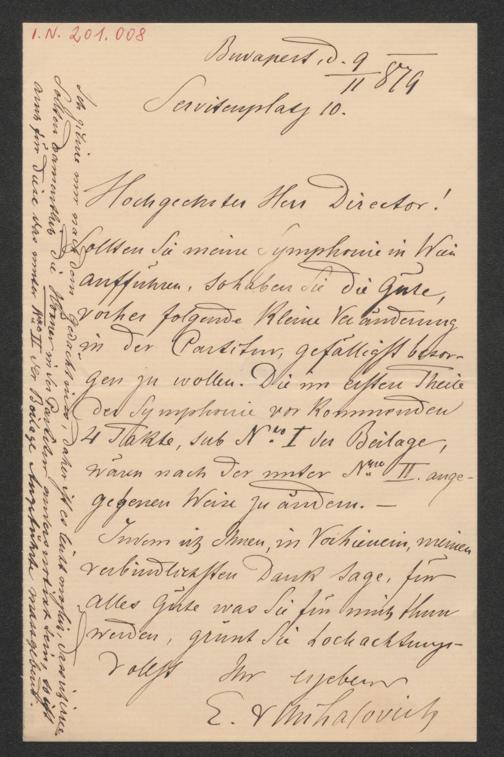 I.N. 201.008
Budapest, d. 9/11 879
Servitenplatz 10.
Hochgeehrter Herr Director!
Sollten Sie meine Symphonie in Wien
aufführen, so haben Sie die Güte,
vorher folgende kleine Veränderung
in der Partitur, gefälligst besor-
gen zu wollen. Die im ersten Theile
der Symphonie vorkommenden
4 Takte, sub Nro I der Beilage,
wären nach der unter Nro II. ange-
gegenen Weise zu ändern. —
Indem ich Ihnen, in Vorhinein, meinen
verbindlichsten Dank sage, für
alles Gute was Sie für mich thun
werden, grüßt Sie hochachtungs-
vollst Ihr ergebener
E. v Mihalovich
Ich citire nur nach dem Gedächtnisse, daher ist es leicht möglich, dass ich eine
Sollten die in der Partitur anders sein, so ist
für diese das unter Nro II der Beilage Angeführte massgebend.